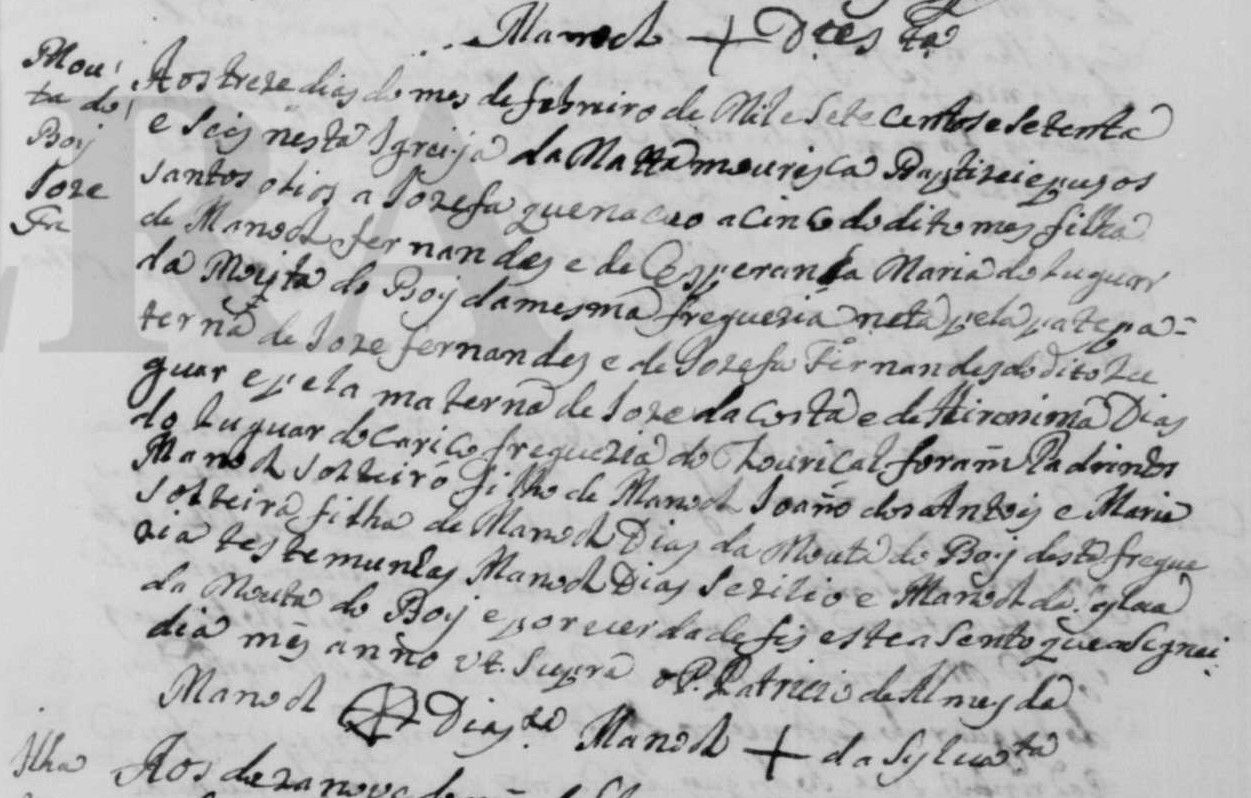 Manoel + Dias ta
Mou
ta do
Boy
Joze
Fr
Aos treze dias do mes de febreiro de Mil e Sete Centos e Setenta
e Seis nesta Igreija da Matta mourisca Baptizei e pus os
santos olios a Jozefa que naceo a cinco do dito mes filha
de Manoel fernandes e de Esperança Maria do Luguar
da Moyta do Boy da mesma freguezia neta pela pate pa=
terna de Joze fernandes e de Jozefa Fernandes do dito Lu
guar e pela materna de Joze da Costa e de Hironima Dias
do Luguar do Cariço freguezia do Lourical foram Padrinhos
Manoel Solteiro filho de Manoel Joaño dos Antois e Maria
Solteira filha de Manoel Dias da Mouta do Boy desta fregue
zia testemunhas Manoel Dias Sezilio e Manoel da Sylva
da Mouta do Boy e por verdade fis este asento que asignei
dia mes anno ut Supra o P. Patricio de Almeyda
Manoel Dias ta Manoel + da Sylva ta
Ilha
Aos dezanove